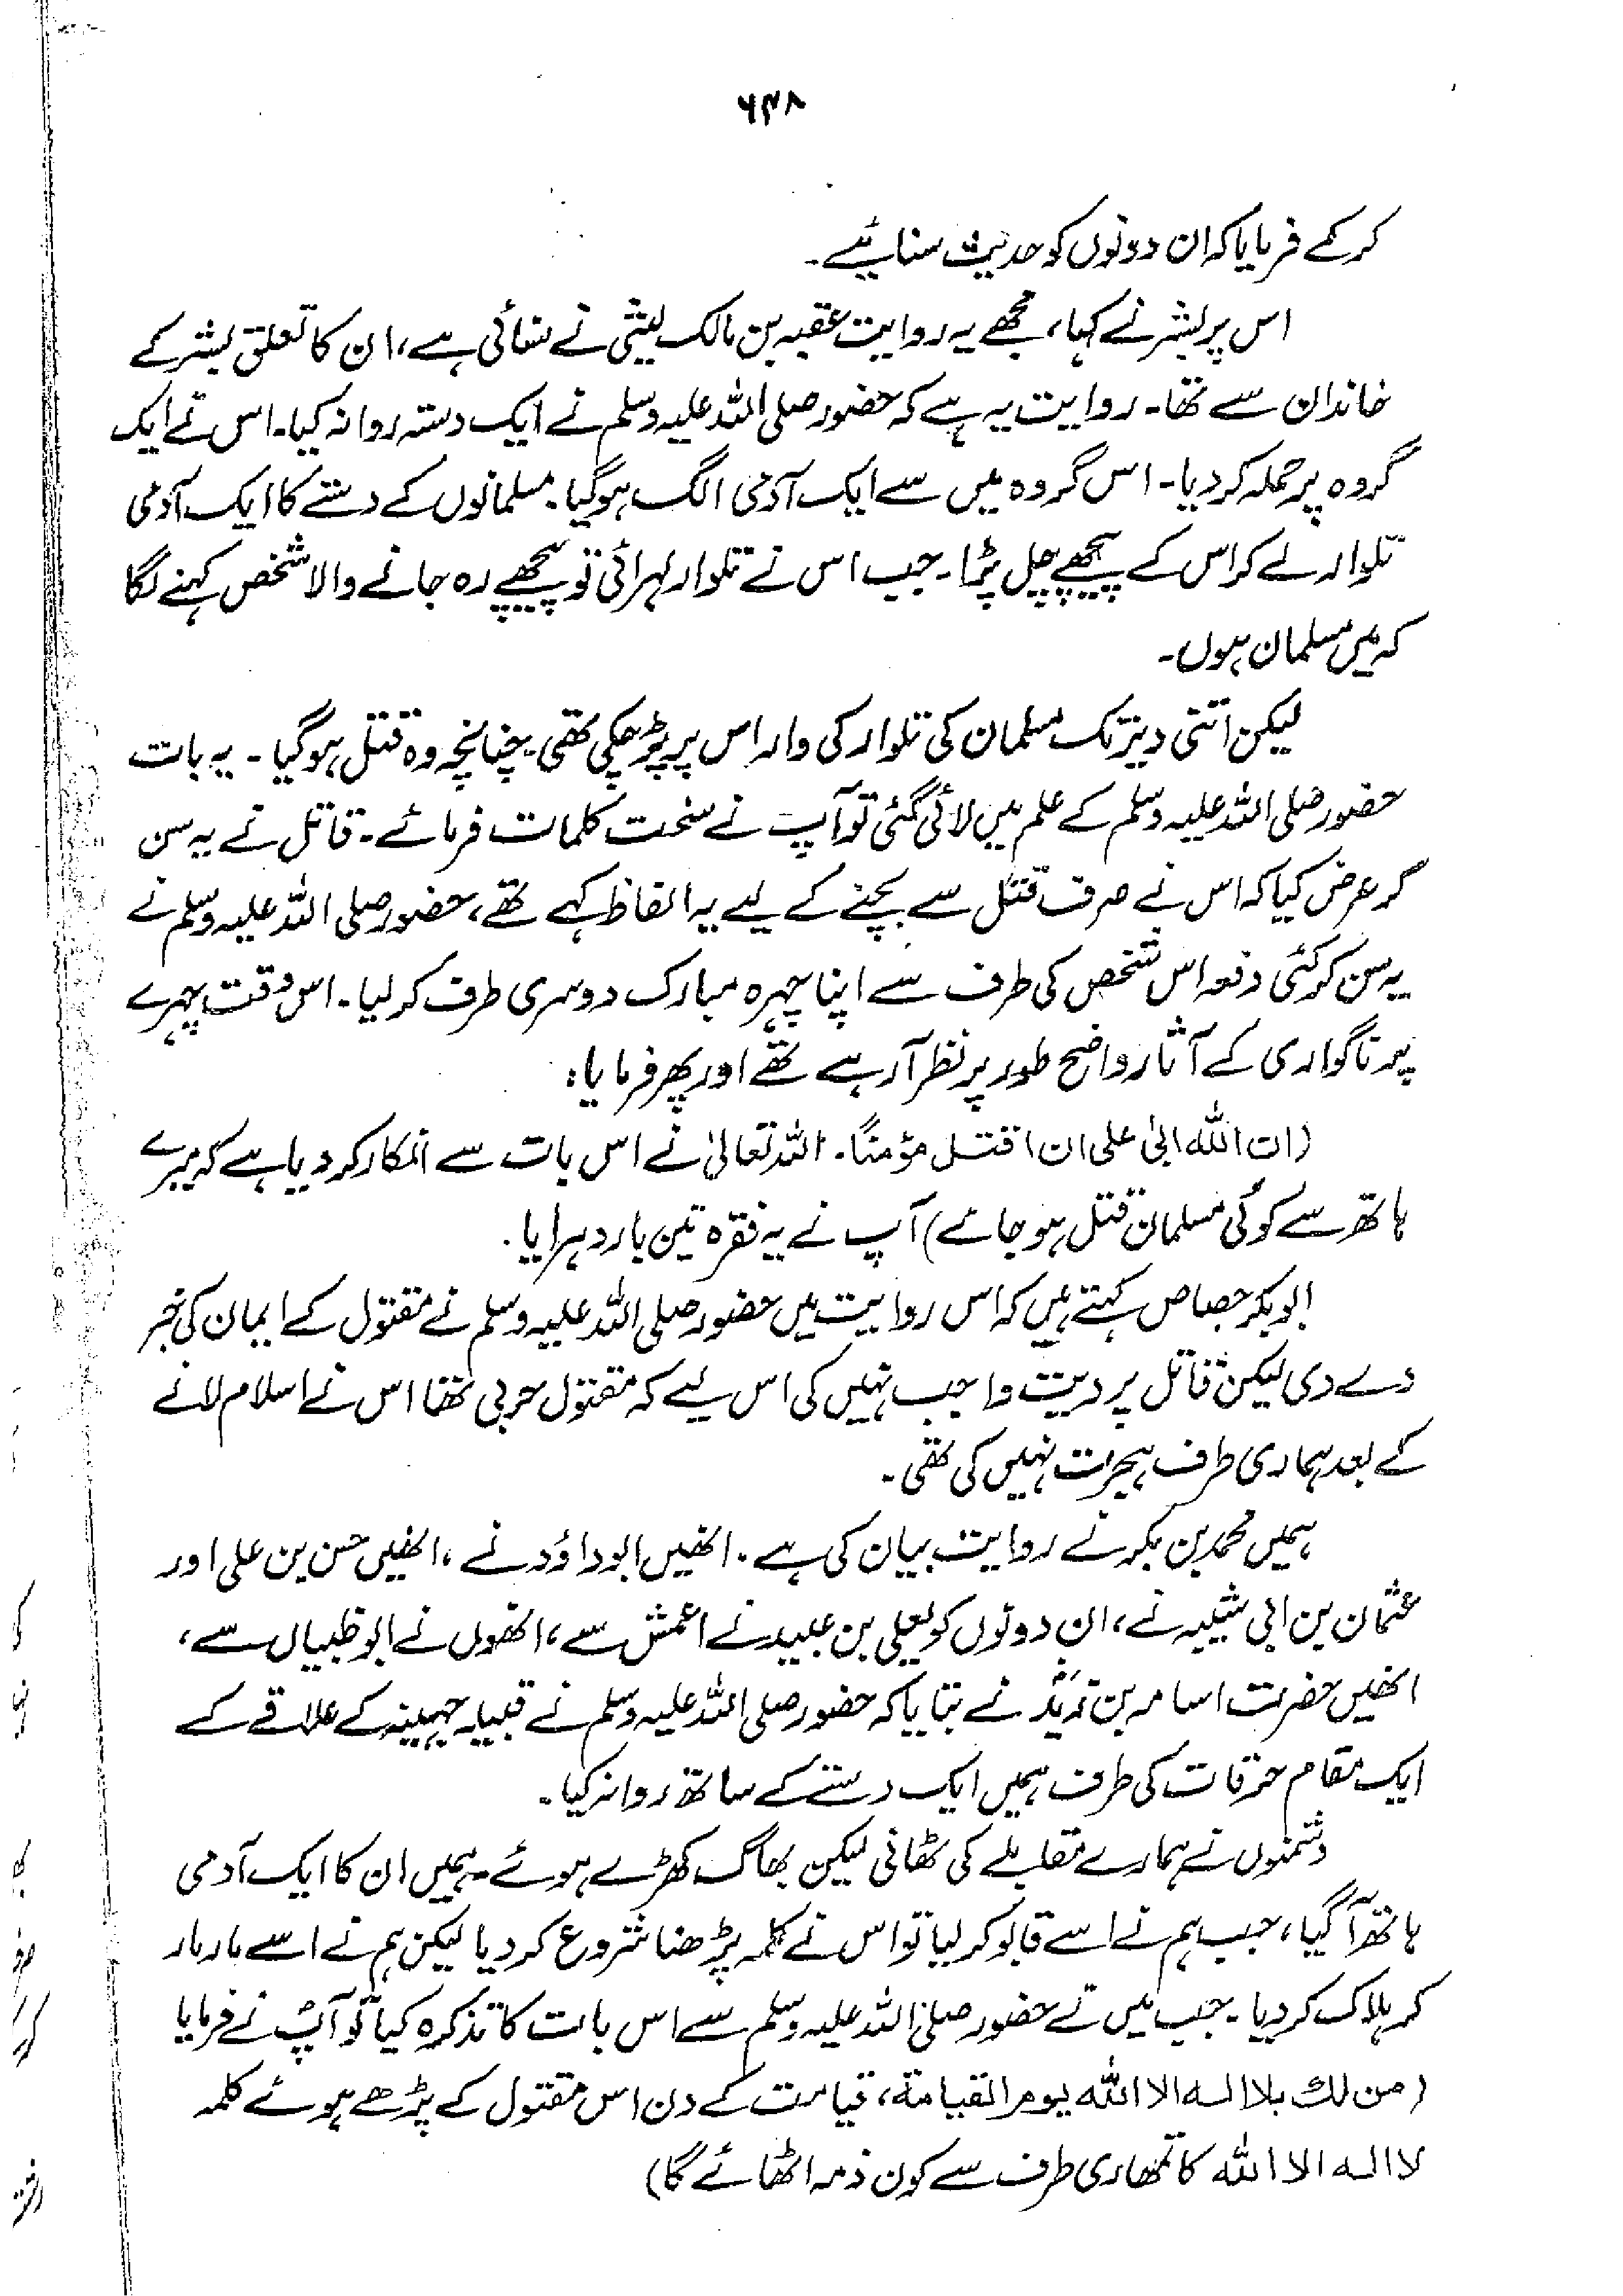 ۶۴۸
کرکے فرمایا کہ ان دونوں کو حدیث سنائیے۔
اس پر بشر نے کہا، مجھے یہ روایت عقبہ بن مالک لیثی نے سنائی ہے، ان کا تعلق بشر کے
خاندان سے تھا۔ روایت یہ ہے کہ حضور صلی اللہ علیہ وسلم نے ایک دستہ روانہ کیا۔ اس نے ایک
گروہ پر حملہ کر دیا۔ اس گروہ میں سے ایک آدمی الگ ہوگیا۔ مسلمانوں کے دستے کا ایک آدمی
تلوار لے کر اس کے پیچھے چل پڑا۔ جب اس نے تلوار لہرائی تو پیچھے رہ جانے والا شخص کہنے لگا
کہ میں مسلمان ہوں۔
لیکن اتنی دیر تک مسلمان کی تلوار کی وار اس پر پڑ چکی تھی۔ چنانچہ وہ قتل ہوگیا۔ یہ بات
حضور صلی اللہ علیہ وسلم کے علم میں لائی گئی تو آپ نے سخت کلمات فرمائے۔ قاتل نے یہ سن
کر عرض کیا کہ اس نے صرف قتل سے بچنے کے لیے یہ الفاظ کہے تھے، حضور صلی اللہ علیہ وسلم نے
یہ سن کر کئی دفعہ اس شخص کی طرف سے اپنا چہرہ مبارک دوسری طرف کر لیا۔ اس وقت چہرے
پر ناگواری کے آثار واضح طور پر نظر آرہے تھے اور پھر فرمایا:
(ان اللہ ابیٰ علی ان اقتل مؤمنًا۔ اللہ تعالیٰ نے اس بات سے انکار کر دیا ہے کہ میرے
ہاتھ سے کوئی مسلمان قتل ہو جائے) آپ نے یہ فقرہ تین بار دہرایا۔
ابوبکر جصاص کہتے ہیں کہ اس روایت میں حضور صلی اللہ علیہ وسلم نے مقتول کے ایمان کی خبر
دے دی لیکن قاتل پر دیت واجب نہیں کی اس لیے کہ مقتول حربی تھا اس نے اسلام لانے
کے بعد ہماری طرف ہجرت نہیں کی تھی۔
ہمیں محمد بن بکر نے روایت بیان کی ہے۔ انھیں ابوداؤد نے، انھیں حسن بن علی اور
عثمان بن ابی شیبہ نے، ان دونوں کو یعلی بن عبید نے اعمش سے، انھوں نے ابوظبیان سے،
انھیں حضرت اسامہ بن زیدؓ نے بتایا کہ حضور صلی اللہ علیہ وسلم نے قبیلہ جہینہ کے علاقے کے
ایک مقام حرقات کی طرف ہمیں ایک دستے کے ساتھ روانہ کیا۔
دشمنوں نے ہمارے مقابلے کی ٹھانی لیکن بھاگ کھڑے ہوئے۔ ہمیں ان کا ایک آدمی
ہاتھ آگیا، جب ہم نے اسے قابو کر لیا تو اس نے کلمہ پڑھنا شروع کر دیا لیکن ہم نے اسے مار مار
کر ہلاک کر دیا۔ جب میں نے حضور صلی اللہ علیہ وسلم سے اس بات کا تذکرہ کیا تو آپؐ نے فرمایا
(من لك بلا الہ الا اللہ یوم القیامة، قیامت کے دن اس مقتول کے پڑھے ہوئے کلمہ
لا الہ الا اللہ کا تمھاری طرف سے کون ذمہ اٹھائے گا)